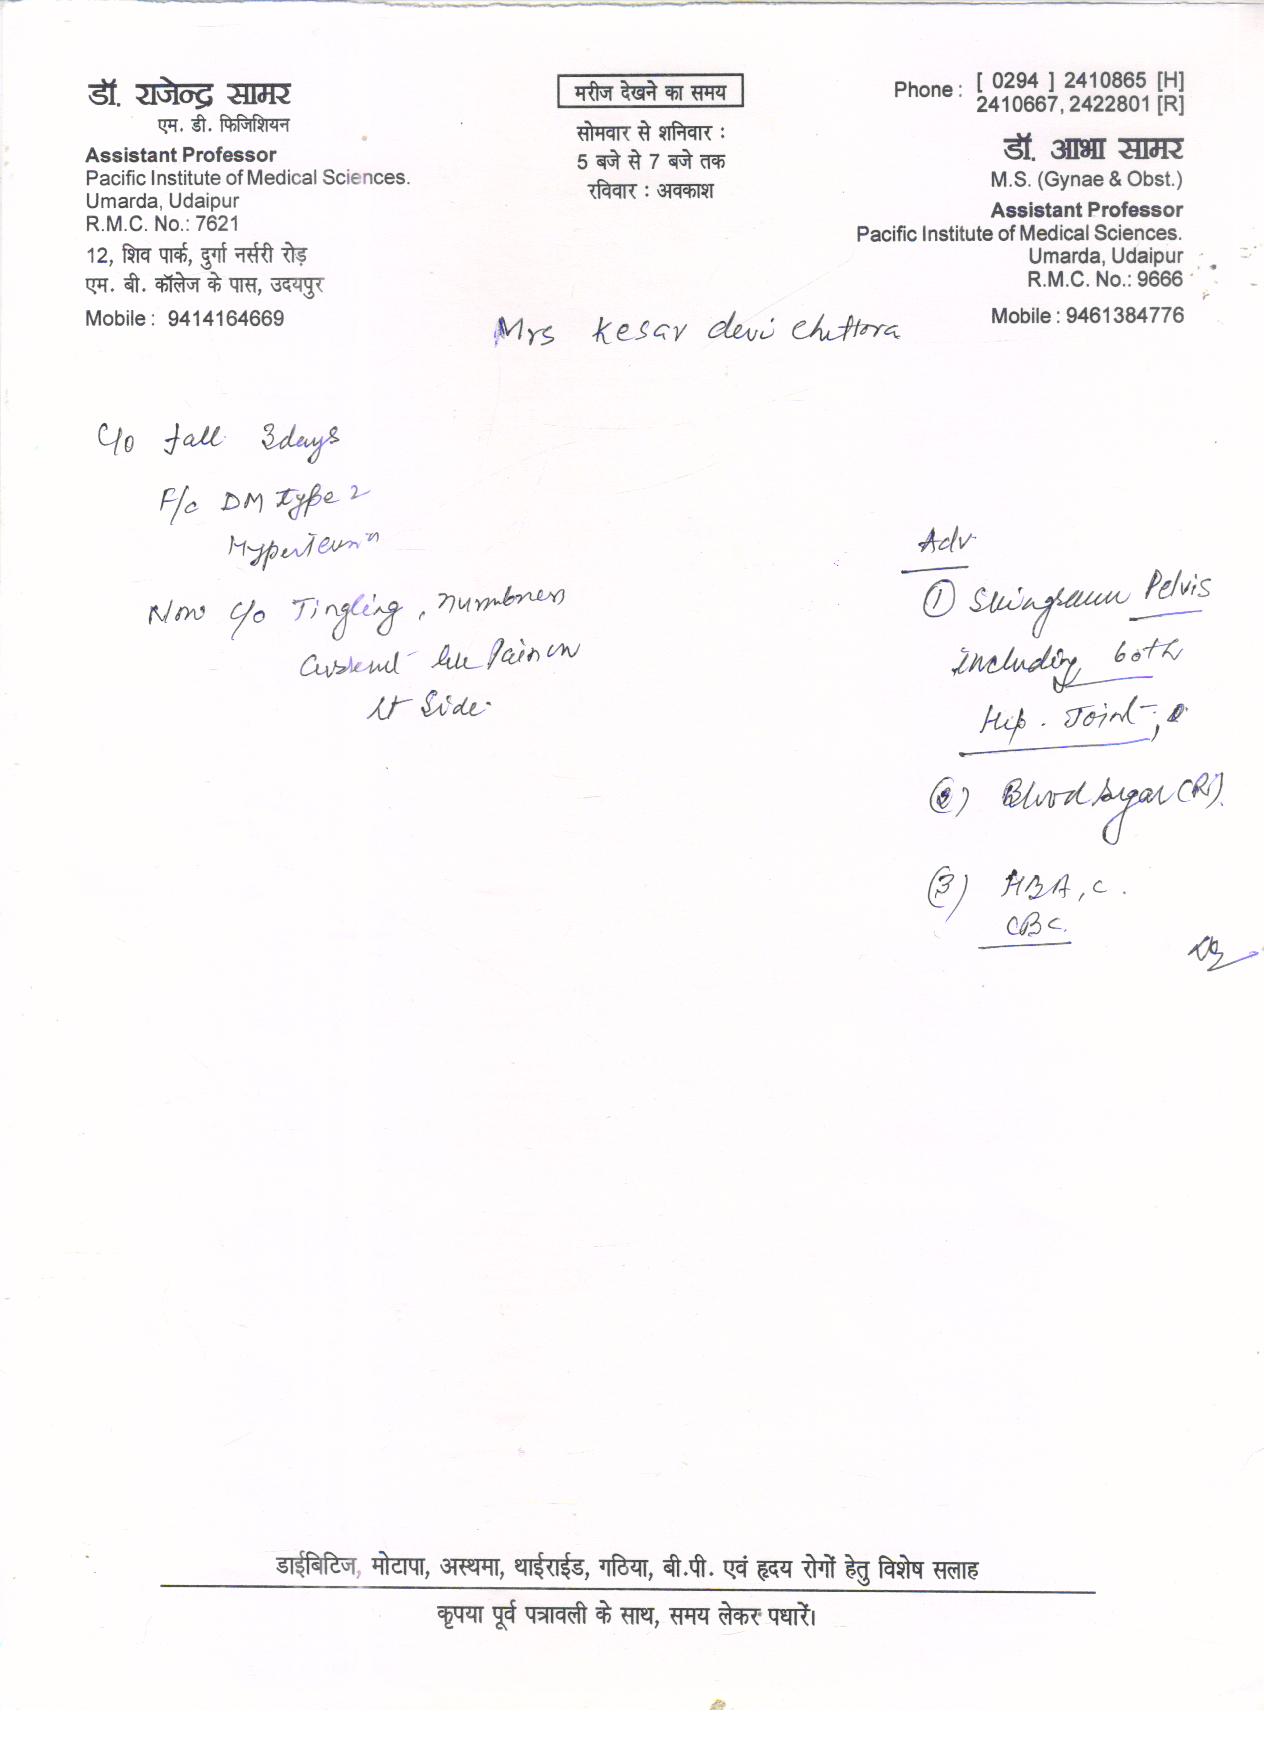 डॉ. राजेन्द्र सामर
एम. डी. फिजिशियन
Assistant Professor
Pacific Institute of Medical Sciences.
Umarda, Udaipur
R.M.C. No.: 7621
12, शिव पार्क, दुर्गा नर्सरी रोड़
एम. बी. कॉलेज के पास, उदयपुर
Mobile : 9414164669
मरीज देखने का समय
सोमवार से शनिवार :
5 बजे से 7 बजे तक
रविवार : अवकाश
Phone : [ 0294 ] 2410865 [H]
2410667, 2422801 [R]
डॉ. आभा सामर
M.S. (Gynae & Obst.)
Assistant Professor
Pacific Institute of Medical Sciences.
Umarda, Udaipur
R.M.C. No.: 9666
Mobile : 9461384776
Mrs Kesar devi Chittora
C/o fall 3days
F/c DM type 2
Now c/o Tingling, numbness
Pain on
lt Side.
Adv
① Pelvis
including both
Hip. Joint,
(2) Blood sugar (R).
(3) HBA,c.
CBC.
डाईबिटिज, मोटापा, अस्थमा, थाईराईड, गठिया, बी.पी. एवं हृदय रोगों हेतु विशेष सलाह
कृपया पूर्व पत्रावली के साथ, समय लेकर पधारें।